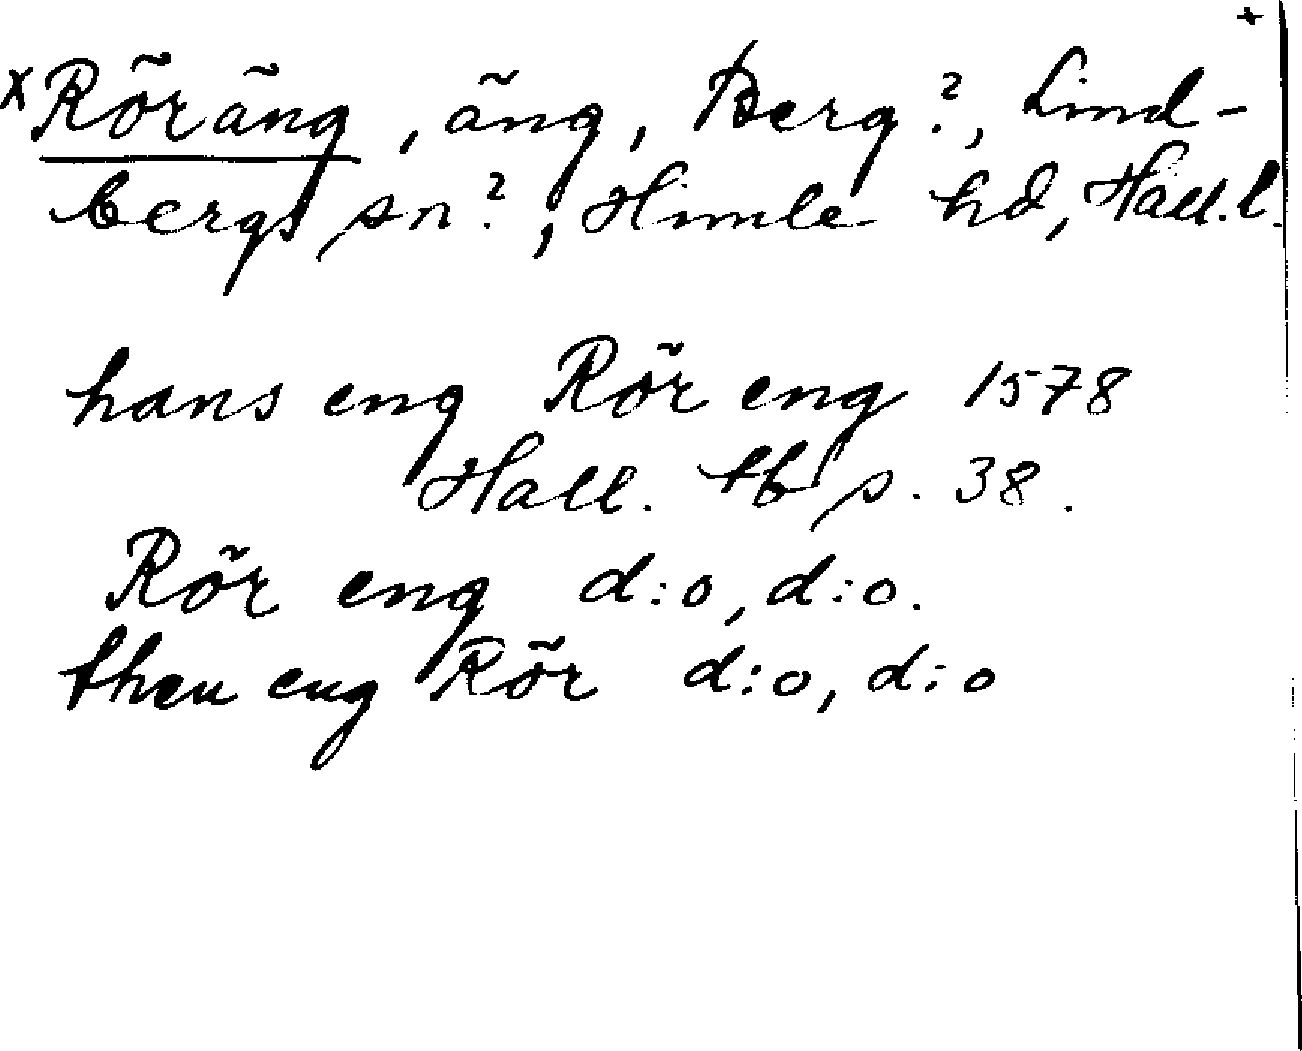 +
x Röräng, äng, Berg?, Lind-
bergs sn?, Himle hd, Hall. l.
hans eng Rör eng 1578
Hall. tb s. 38.
Rör eng d:o, d:o.
then eng Rör d:o, d:o